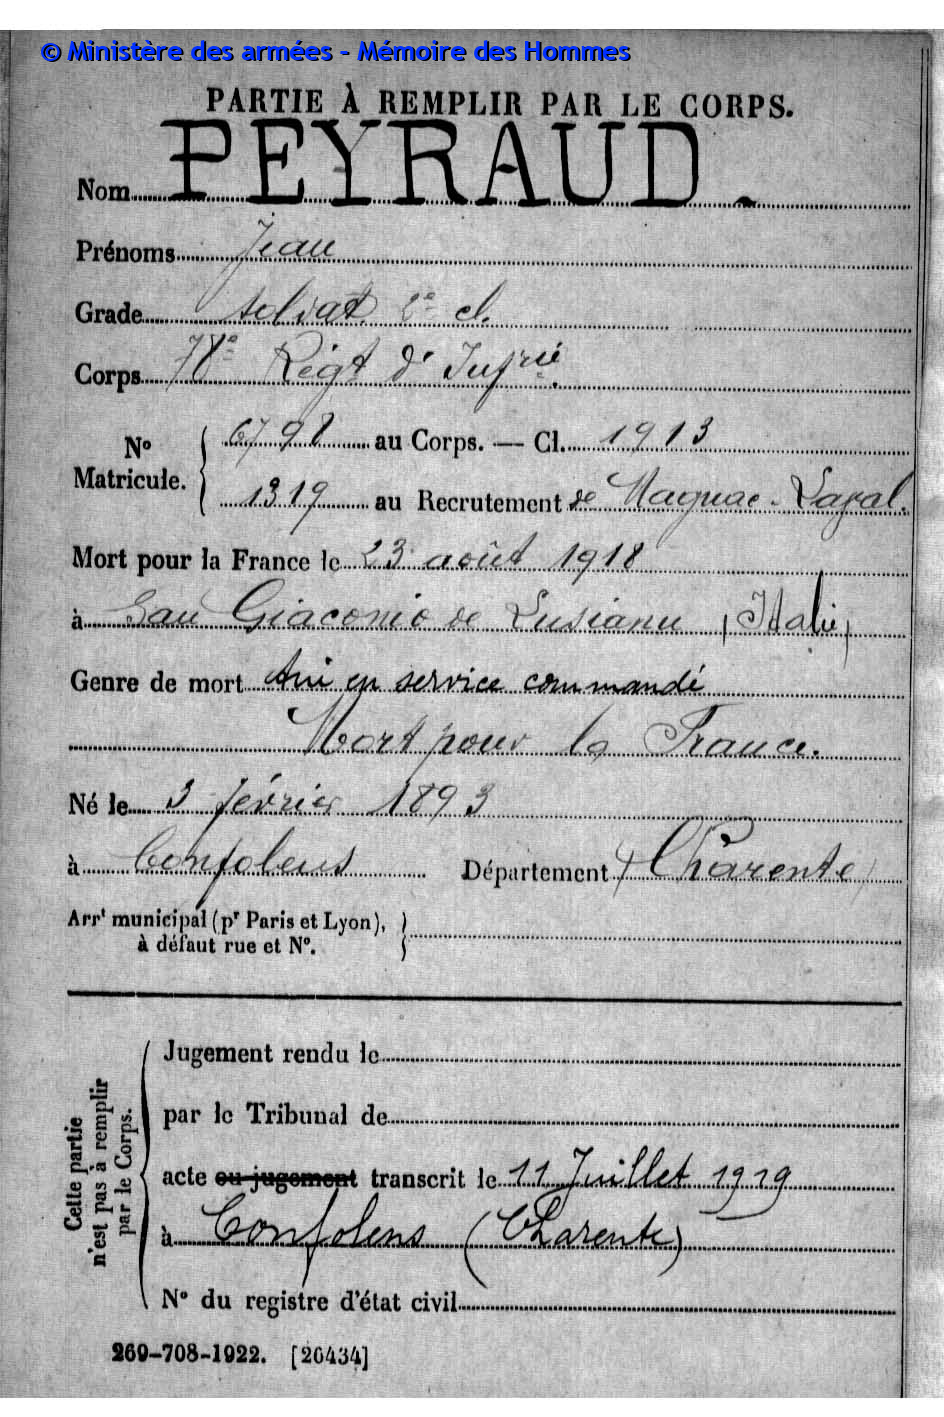 © Ministère des armées - Mémoire des Hommes
PARTIE À REMPLIR PAR LE CORPS.
Nom PEYRAUD.
Prénoms Jean
Grade soldat 2e cl.
Corps 78e Régt d'Infrie.
No Matricule. 6798 au Corps. — Cl. 1913
1319 au Recrutement de Magnac-Laval.
Mort pour la France le 23 août 1918
à San Giacomo de Lusianu (Italie)
Genre de mort tué en service commandé
Mort pour la France.
Né le 3 février 1893
à Confolens Département (Charente)
Arrt municipal (pr Paris et Lyon),
à défaut rue et No.
Cette partie
n'est pas à remplir
par le Corps.
Jugement rendu le
par le Tribunal de
acte ou jugement transcrit le 11 Juillet 1919
à Confolens (Charente)
No du registre d'état civil
269-708-1922. [26434]